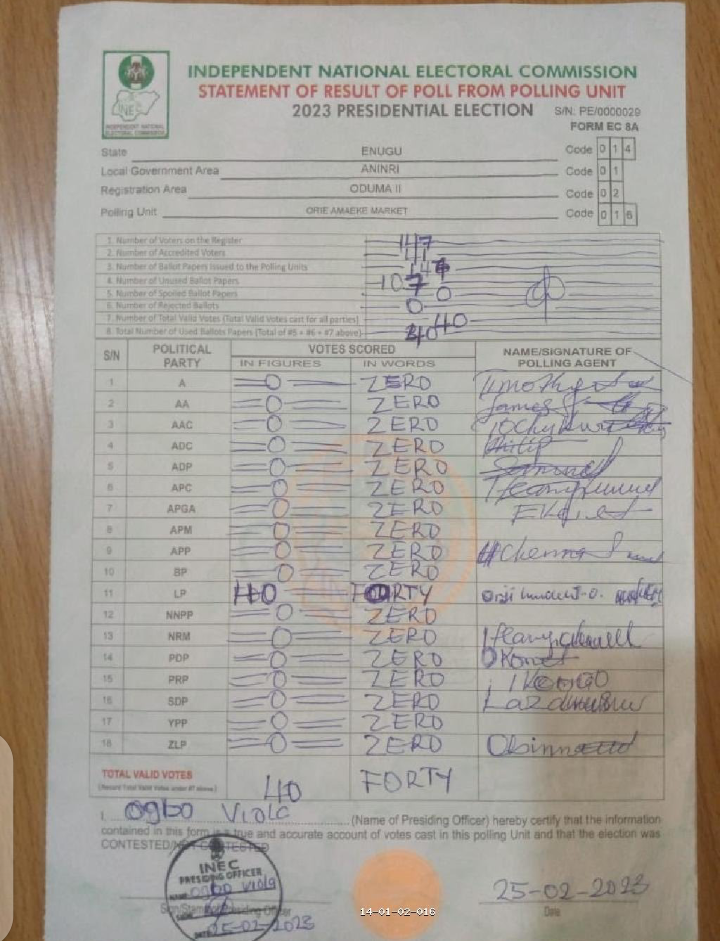 INDEPENDENT NATIONAL ELECTORAL COMMISSION
STATEMENT OF RESULT OF POLL FROM POLLING UNIT
2023 PRESIDENTIAL ELECTION S/N. PE/0000029
FORM EC 8A
INEC
INDEPENDENT NATIONAL ELECTORAL COMMISSION
State ENUGU Code 0 1 4
Local Government Area ANINRI Code 0 1
Registration Area ODUMA II Code 0 2
Polling Unit ORIE AMAEKE MARKET Code 0 1 6
1. Number of Voters on the Register
2. Number of Accredited Voters
3. Number of Ballot Papers Issued to the Polling Units
4. Number of Unused Ballot Papers
5. Number of Spoiled Ballot Papers 0
6. Number of Rejected Ballots 0
7. Number of Total Valid Votes (Total Valid Votes cast for all parties) 40
8. Total Number of Used Ballots Papers (Total of #5 + #6 + #7 above) 40
S/N POLITICAL PARTY VOTES SCORED NAME/SIGNATURE OF POLLING AGENT
IN FIGURES IN WORDS
1 A 0 ZERO Timothy
2 AA 0 ZERO James
3 AAC 0 ZERO
4 ADC 0 ZERO Philip
5 ADP 0 ZERO Samuel
6 APC 0 ZERO
7 APGA 0 ZERO
8 APM 0 ZERO
9 APP 0 ZERO
10 BP 0 ZERO
11 LP 40 FORTY
12 NNPP 0 ZERO
13 NRM 0 ZERO
14 PDP 0 ZERO
15 PRP 0 ZERO
16 SDP 0 ZERO
17 YPP 0 ZERO
18 ZLP 0 ZERO
TOTAL VALID VOTES 40 FORTY
(Record Total Valid Votes under #7 above)
I, Ogbo Viola (Name of Presiding Officer) hereby certify that the information
contained in this form is a true and accurate account of votes cast in this polling Unit and that the election was
CONTESTED/NOT CONTESTED
INEC
PRESIDING OFFICER
Ogbo Viola
25-02-2023
Sign/Stamp of Presiding Officer
25-02-2023
Date
14-01-02-016